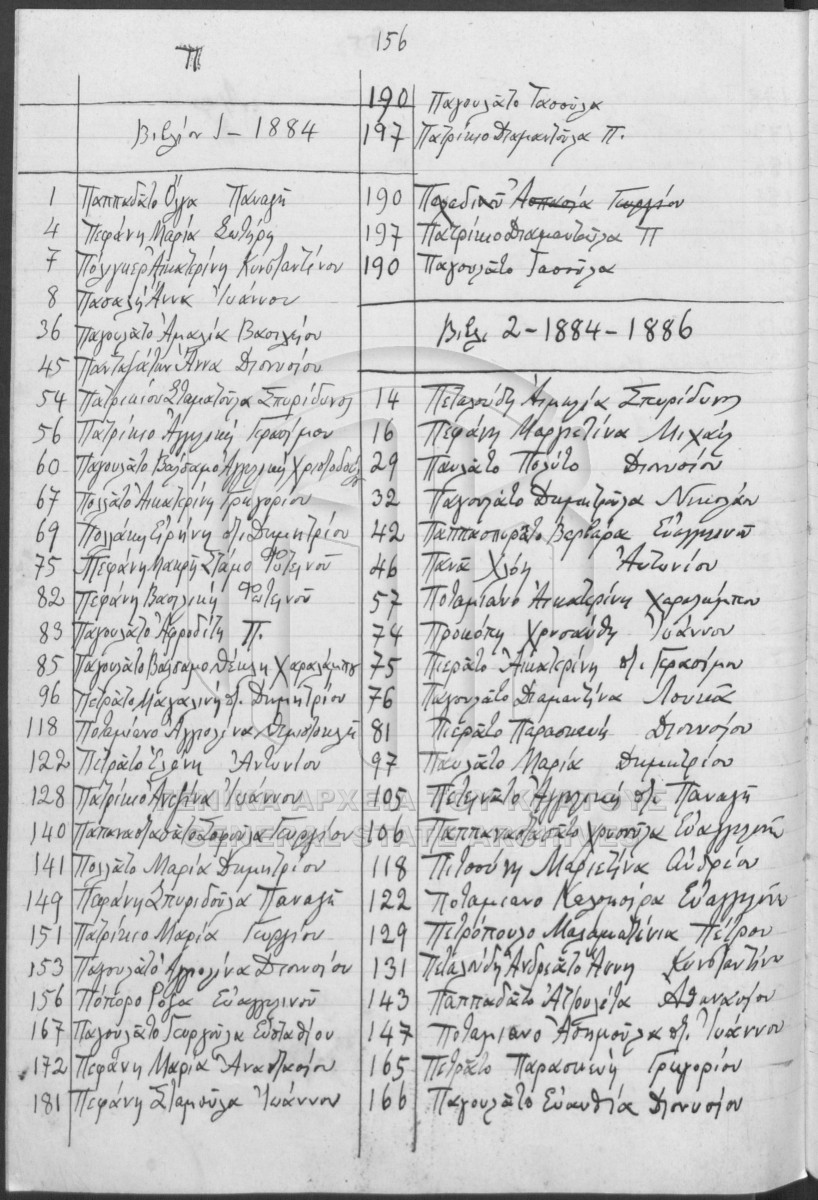 Π
156
Βιβλίον 1 - 1884
1 Παππαδᾶτο Ὄλγα Παναγῆ
4 Πεφάνη Μαρία Σωτήρη
7 Πόλυγκερ Αἰκατερίνη Κωνσταντίνου
8 Πασαλῆ Ἄννα Ἰωάννου
36 Παγουλᾶτο Ἀμαλία Βασιλείου
45 Πανταζάτου Ἄννα Διονυσίου
54 Πατρικίου Σταματούλα Σπυρίδωνος
56 Πατρίκιο Ἀγγελική Γερασίμου
60 Παγουλᾶτο Βαλσαμο Ἀγγελική Χριστοδούλου
67 Πολλᾶτο Αἰκατερίνη Γρηγορίου
69 Πολλάκη Εἰρήνη Δημητρίου
75 Πεφάνη Μακρῆ Στάμο Φωτεινοῦ
82 Πεφάνη Βασιλική Φωτεινοῦ
83 Παγουλᾶτο Ἀφροδίτη Π.
85 Παγουλᾶτο Βαλσαμο Θέκλη Χαραλάμπου
96 Πετρᾶτο Μαγδαληνή Δημητρίου
118 Ποταμιάνο Ἀγγιολίνα Θεμιστοκλῆ
122 Πετρᾶτο Ἑλένη Ἀντωνίου
128 Πατρίκιο Ἀνεζίνα Ἰωάννου
140 Παπαναστασᾶτο Σοφούλα Γεωργίου
141 Πολλᾶτο Μαρία Δημητρίου
149 Πεφάνη Σπυριδοῦλα Παναγῆ
151 Πατρίκιο Μαρία Γεωργίου
153 Παγουλᾶτο Ἀγγιολίνα Διονυσίου
156 Πόπορο Ρόζα Εὐαγγελινοῦ
167 Παγουλᾶτο Γεωργοῦλα Εὐσταθίου
172 Πεφάνη Μαρία Ἀναστασίου
181 Πεφάνη Σταμοῦλα Ἰωάννου
190 Παγουλᾶτο Τασοῦλα
197 Πατρίκιο Διαμαντοῦλα Π.
190 Ἀσπασία Γεωργίου
197 Πατρίκιο Διαμαντοῦλα Π
190 Παγουλᾶτο Τασοῦλα
Βιβλ. 2 - 1884 - 1886
14 Πεταλούδη Αἰμιλία Σπυρίδωνος
16 Πεφάνη Μαργετίνα Μιχαήλ
29 Παυλᾶτο Πολύτο Διονυσίου
32 Παγουλᾶτο Δημητροῦλα Νικολάου
42 Παππασπυρᾶτο Βαρβάρα Εὐαγγελινοῦ
46 Πανᾶ Χλόη Ἀντωνίου
57 Ποταμιάνο Αἰκατερίνη Χαραλάμπου
74 Προκόπη Χρυσάνθη Ἰωάννου
75 Πιερᾶτο Αἰκατερίνη Γερασίμου
76 Παγουλᾶτο Διαμαντίνα Λουκᾶ
81 Πιερᾶτο Παρασκευή Διονυσίου
97 Παυλᾶτο Μαρία Δημητρίου
105 Πετεινᾶτο Ἀγγελική Παναγῆ
106 Παππαναστασᾶτο Χρυσούλα Εὐαγγελινοῦ
118 Πιτσούλη Μαριετίνα Ἀνδρέου
122 Ποταμιανο Καλομοίρα Εὐαγγελινοῦ
129 Πετρόπουλο Μαλαματένια Πέτρου
131 Πεταλούδη Ἀνδρεᾶτο Ἄννη Κωνσταντίνου
143 Παππαδᾶτο Ἀτζουλέτα Ἀθανασίου
147 Ποταμιανο Ἀσημοῦλα Ἰωάννου
165 Πετρᾶτο Παρασκευή Γρηγορίου
166 Παγουλᾶτο Εὐανθία Διονυσίου
ΓΕΝΙΚΑ ΑΡΧΕΙΑ ΤΟΥ ΚΡΑΤΟΥΣ
GENERAL STATE ARCHIVES